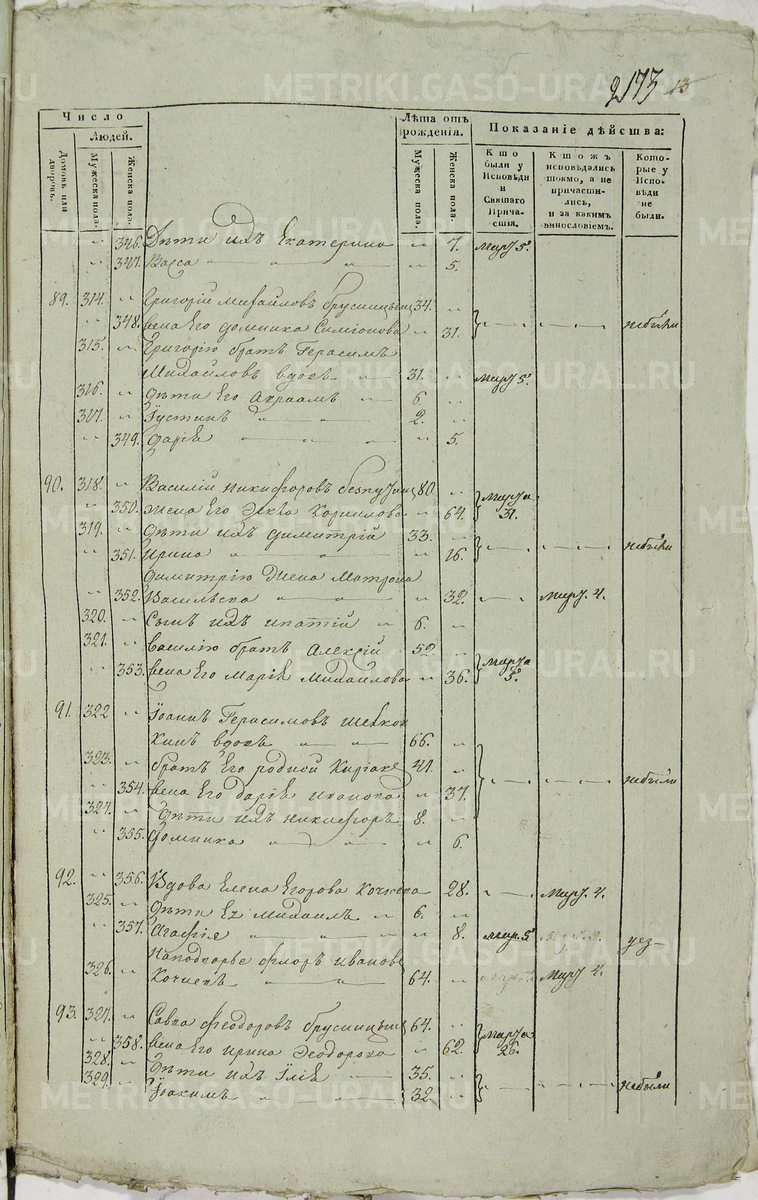 2173 13
Число
Людей.
Лѣта отъ рожденія.
Показаніе дѣйства:
Домовъ или дворовъ.
Мужеска пола.
Женска пола.
Мужеска пола.
Женска пола.
Кто были у Исповѣди и Святаго Причастія.
Кто жъ исповѣдались токмо, а не причастились, и за какимъ винословіемъ.
Которые у Исповѣди не были.
" 346. Дѣти ихъ Екатерина " 7. Мар. 5.
" 347. Васса " " " 5.
89. 314. " Григорій Михайловъ Брусницынъ 34. "
" 348. жена Его Домника Симіонова " 31. небыли
315. " Григорію братъ Герасимъ
Михайловъ вдовъ 31. " Мар. 5.
316. " Дѣти Его Авраамъ 6 "
317. " Іустинъ 2. "
" 349. Дарія 5.
90. 318. " Василій Никифоровъ 80. "
" 350. жена Его Ѳекла Корнилова " 64. Марта 31.
319. " Дѣти ихъ Димитрій 33. "
" 351. Ирина " " " 16. небыли
Димитрію Жена Матрона
" 352. Васильева " 32. Мар. 4.
320. " Сынъ ихъ Ипатій 6. "
321. " Василію братъ Алексій 52. "
" 353. жена Его Марія Михайлова " 36. Марта 5.
91. 322 " Іоаннъ Герасимовъ
вдовъ 66. "
323. " братъ Его родной 41. "
" 354. жена Его Дарія Иванова " 37. небыли
324. " Дѣти ихъ Никифоръ 8. "
" 355. Домника " 6.
92. " 356. Вдова Елена Егорова 28. Мар. 4.
325. " Дѣти Ея Михаилъ " 6. "
" 357. Агафія " " 8. Мар. 5.
Флоръ Ивановъ
326. " 64. " Мар. 4.
93. 327. " Савва Ѳеодоровъ Брусницынъ 64. "
" 358. жена Его Ирина Ѳеодорова " 62. Марта 26.
328. " Дѣти ихъ Илія 35. "
329. " Іоакимъ 32. " небыли
METRIKI.GASO-URAL.RU